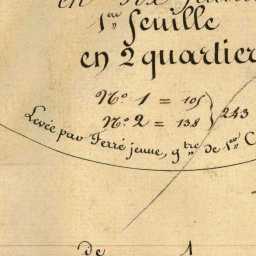 en six feuilles
1ère feuille
en 2 quartier
N.º 1 = 105
N.º 2 = 138
243
Levée par Ferré jeune, gtre de 1ère C
de 1